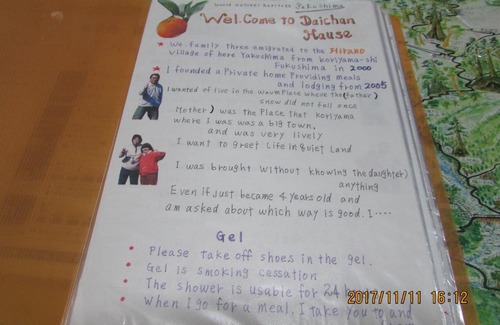 World natural heritage Yakushima
Wel.Come to Daichan
House
We family three emigrated to the Hirano
Village of here Yakushima from Koriyama-shi
Fukushima in 2000
I founded a Private home Providing meals
and lodging from 2005
I wanted of live in the waum Place where the (father)
snow did not fall once
Mother) was the Place that Koriyama
where I was was a big Town,
and was very lively
I want to greet Life in Quiet Land
I was brought without knowing the daughter)
anything
Even if just became 4 years old and
am asked about which way is good. I....
Gel
Please take off shoes in the gel.
Gel is smoking cessation
The shower is usable for 24
When I go for a meal, I take you to and
2017/11/11 16:12